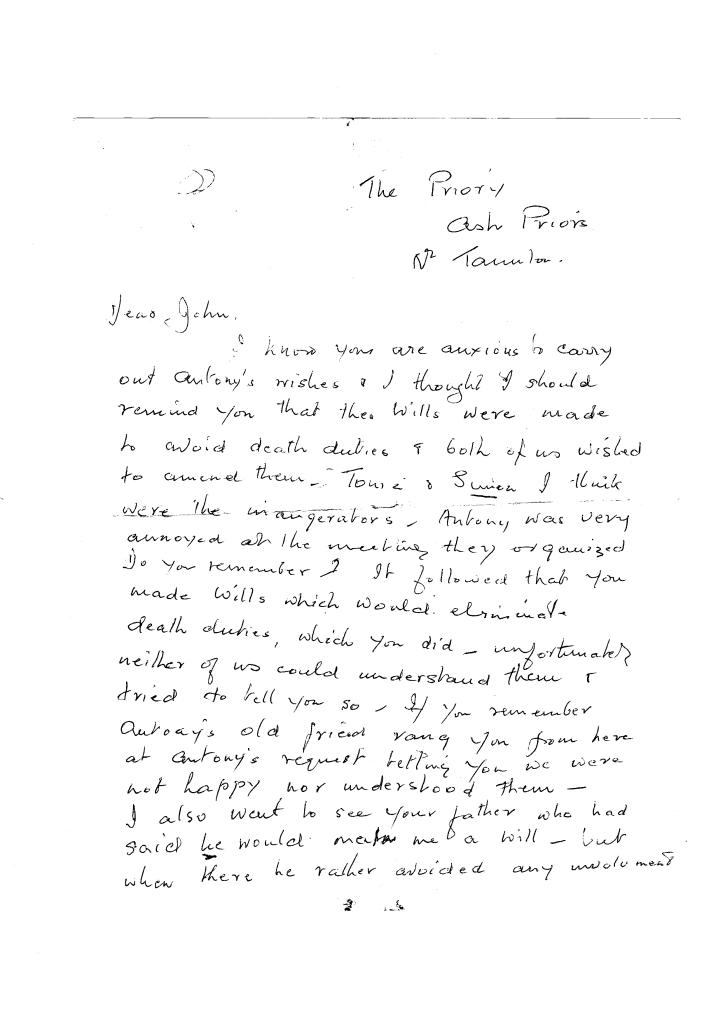 The Priory
Ash Priors
Nr Taunton.
Dear John.
I know you are anxious to carry
out Antony's wishes & I thought I should
remind you that the Wills were made
to avoid death duties & both of us wished
to amend them - & Simon I think
were the inaugerators - Antony was very
annoyed at the meeting they organized
Do you remember? It followed that you
made Wills which would eliminate
death duties, which you did - unfortunately
neither of us could understand them &
tried to tell you so - If you remember
Antony's old friend rang you from here
at Antony's request telling you we were
not happy nor understood them -
I also went to see your father who had
said he would make me a will - but
when there he rather avoided any involvment